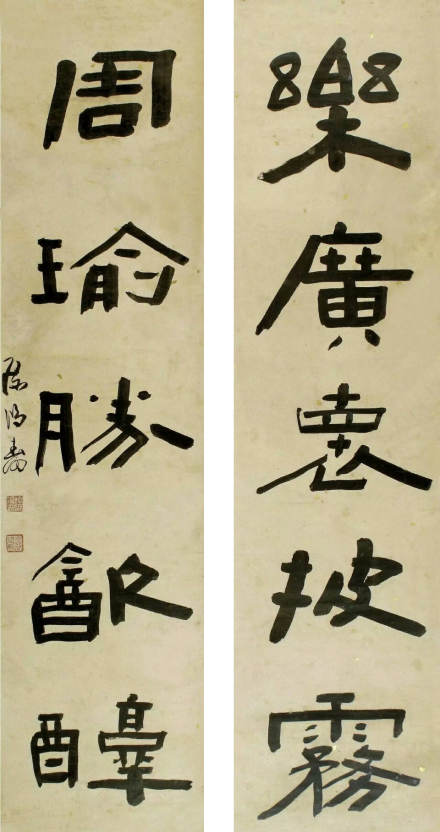 樂廣褱披霧
周瑜勝㱃醇
陳鴻壽